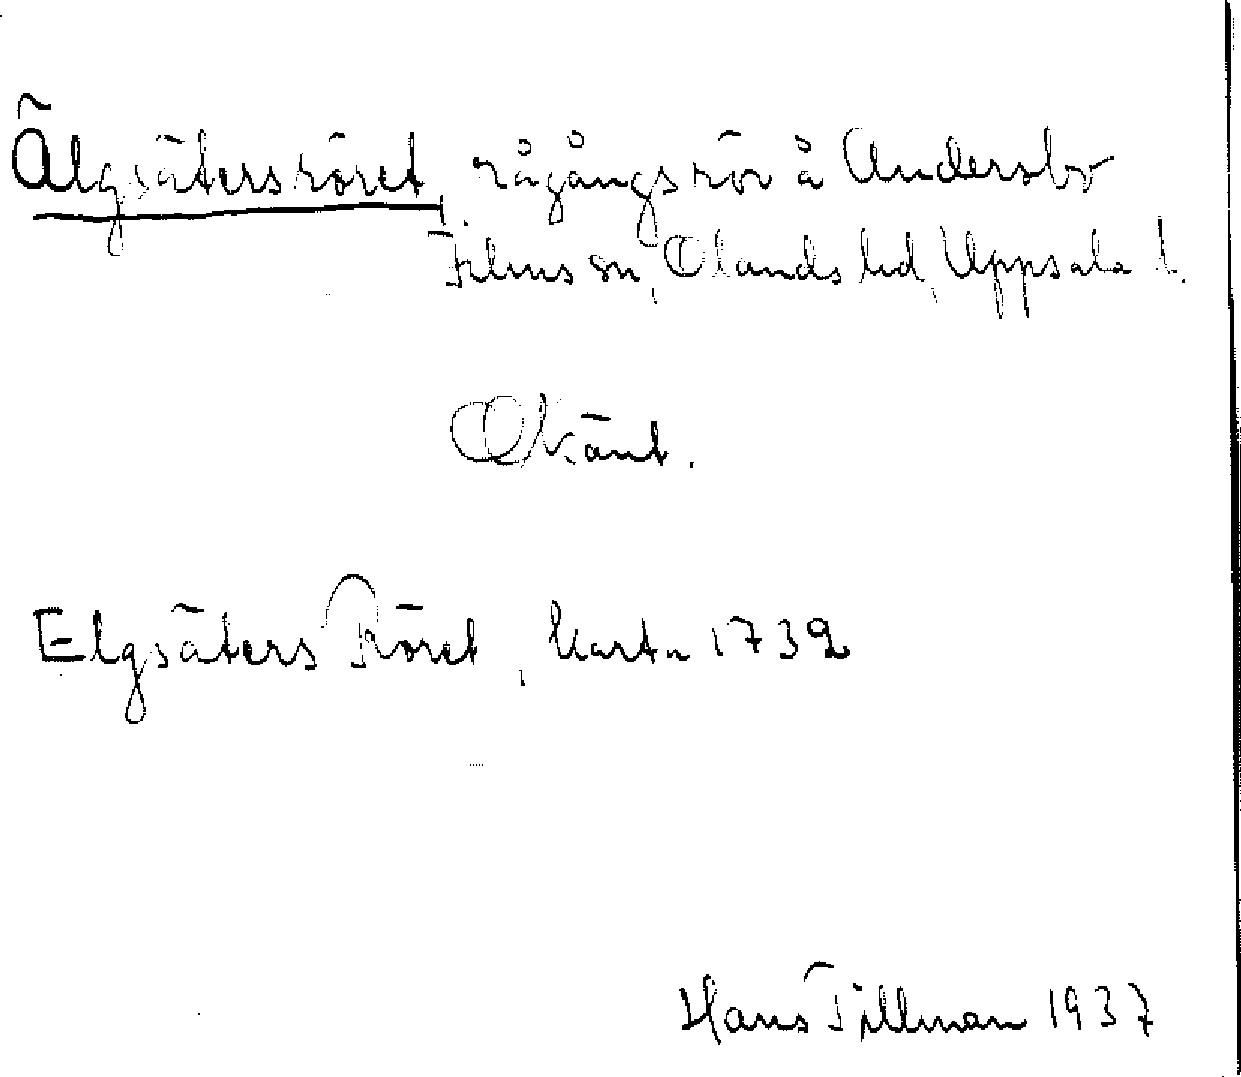 Älgsätersröret, rågångsrör å Andersbo
Films sn, Olands hd, Uppsala l.
Okänt.
Elgsäters Röret, karta 1732
Hans Tillman 1937